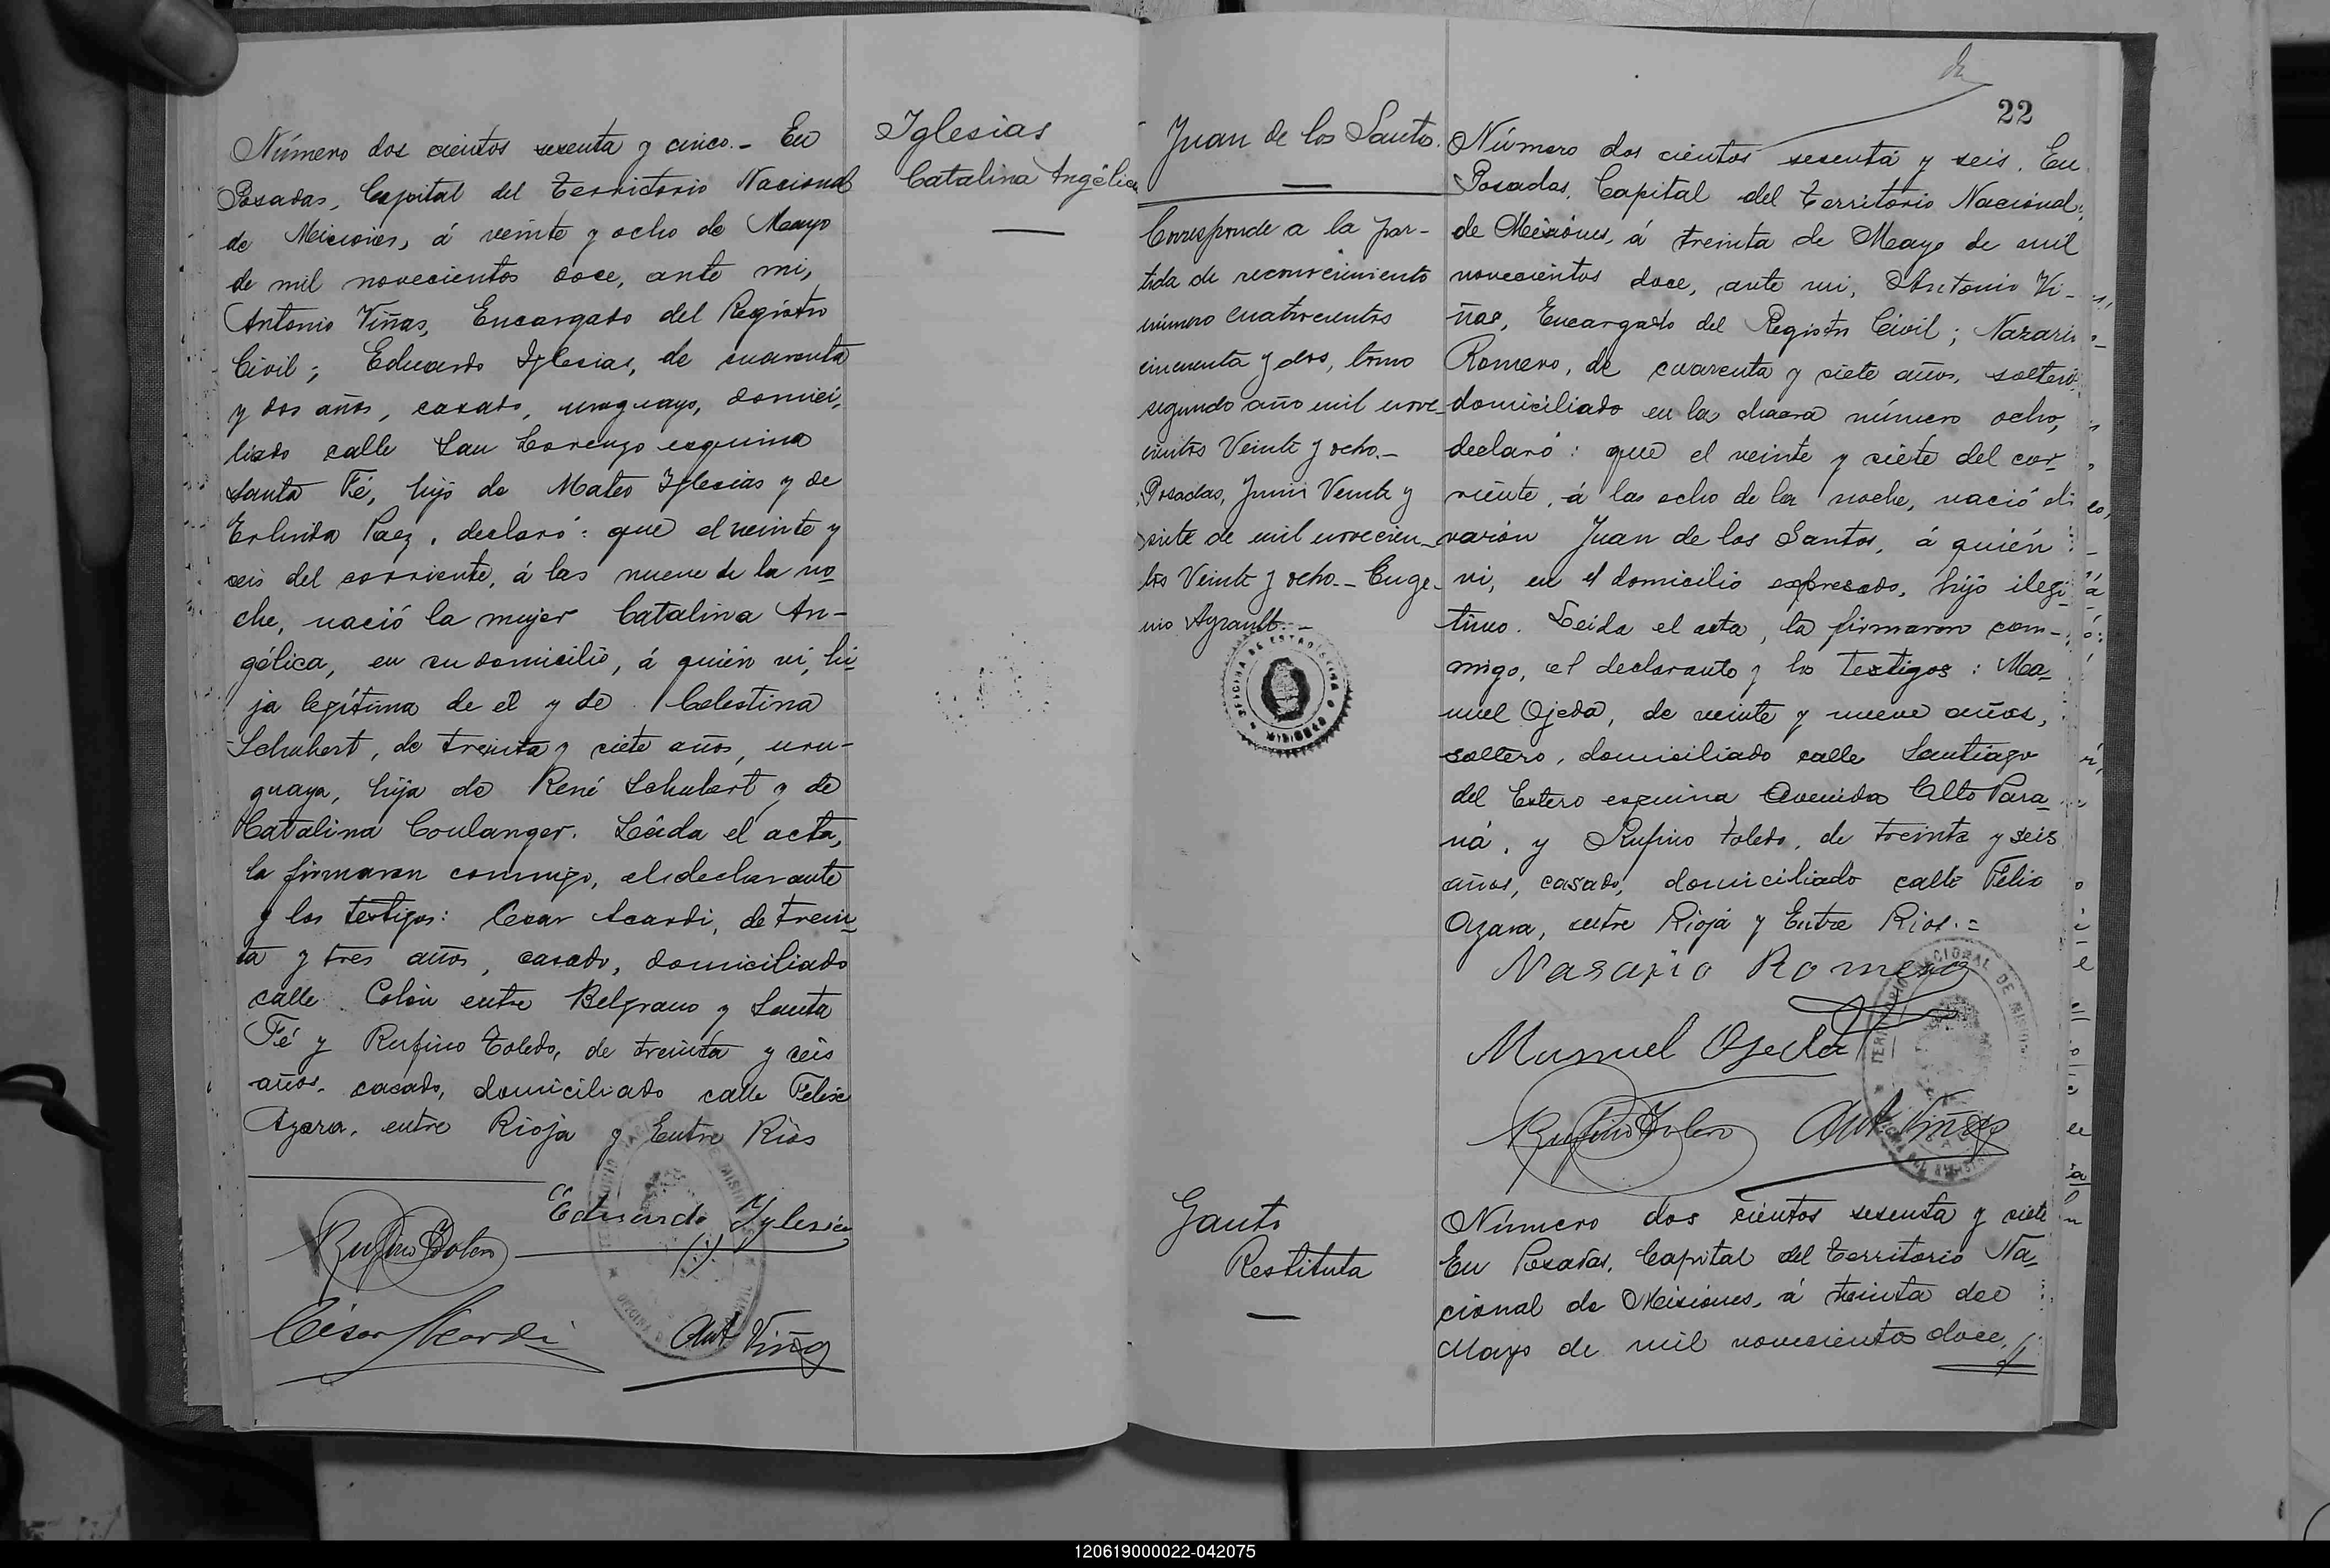 Número dos cientos sesenta y cinco.- En
Posadas, Capital del Territorio Nacional
de Misiones, á veinte y ocho de Mayo
de mil novecientos doce, ante mi,
Antonio Viñas, Encargado del Registro
Civil; Eduardo Iglesias, de cuarenta
y dos años, casado, uruguayo, domici,
liado calle San Lorenzo esquina
Santa Fé, hijo de Mateo Iglesias y de
Erlinda Paez, declaró: que el veinte y
seis del corriente, á las nueve de la no
che, nació la mujer Catalina An-
gélica, en su domicilio, á quién vi, hi
ja legítima de él y de Celestina
Schubert, de treinta y siete años, uru-
guaya, hija de René Schubert y de
Catalina Coulanger. Leida el acta,
la firmaron conmigo, el declarante
y los testigos: Cesar Acardi, de trein
ta y tres años, casado, domiciliado
calle Colón entre Belgrano y Santa
Fé y Rufino Toledo, de treinta y seis
años, casado, domiciliado calle Felix
Azara, entre Rioja y Entre Rios
Eduardo Iglesias
Rufino Toledo
César Acardi
Ant Viñas
Iglesias
Catalina Angélica
Juan de los Santos.
Corresponde a la par-
tida de reconocimiento
número cuatrocientos
cincuenta y dos, tomo
segundo año mil nove-
cientos Veinte y ocho.-
Posadas, Junio Veinte y
siete de mil novecien-
tos Veinte y ocho.- Euge-
nio Ayrault.-
Gauto
Restituta
22
Número dos cientos sesenta y seis. En
Posadas, Capital del Territorio Nacional
de Misiones, á treinta de Mayo de mil
novecientos doce, ante mi, Antonio Vi-
ñas, Encargado del Registro Civil; Nazario
Romero, de cuarenta y siete años, soltero
domiciliado en la chacra número ocho,
declaró: que el veinte y siete del cor-
riente, á las ocho de la noche, nació el
varón Juan de los Santos, á quién
vi, en el domicilio expresado, hijo ilegí
timo. Leida el acta, la firmaron con-
migo, el declarante y los testigos: Ma-
nuel Ojeda, de veinte y nueve años,
soltero, domiciliado calle Santiago
del Estero esquina Avenida Alto Para
ná, y Rufino Toledo, de treinta y seis
años, casado, domiciliado calle Felix
Azara, entre Rioja y Entre Rios.=
Nasario Romero
Manuel Ojeda
Rufino Toledo Ant Viñas
Número dos cientos sesenta y siete
En Posadas, Capital del Territorio Na-
cional de Misiones, á treinta de
Mayo de mil novecientos doce,
120619000022-042075